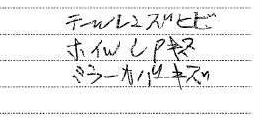 テールレンズヒビ
ホイルLPキズ
ミラーカバーキズ